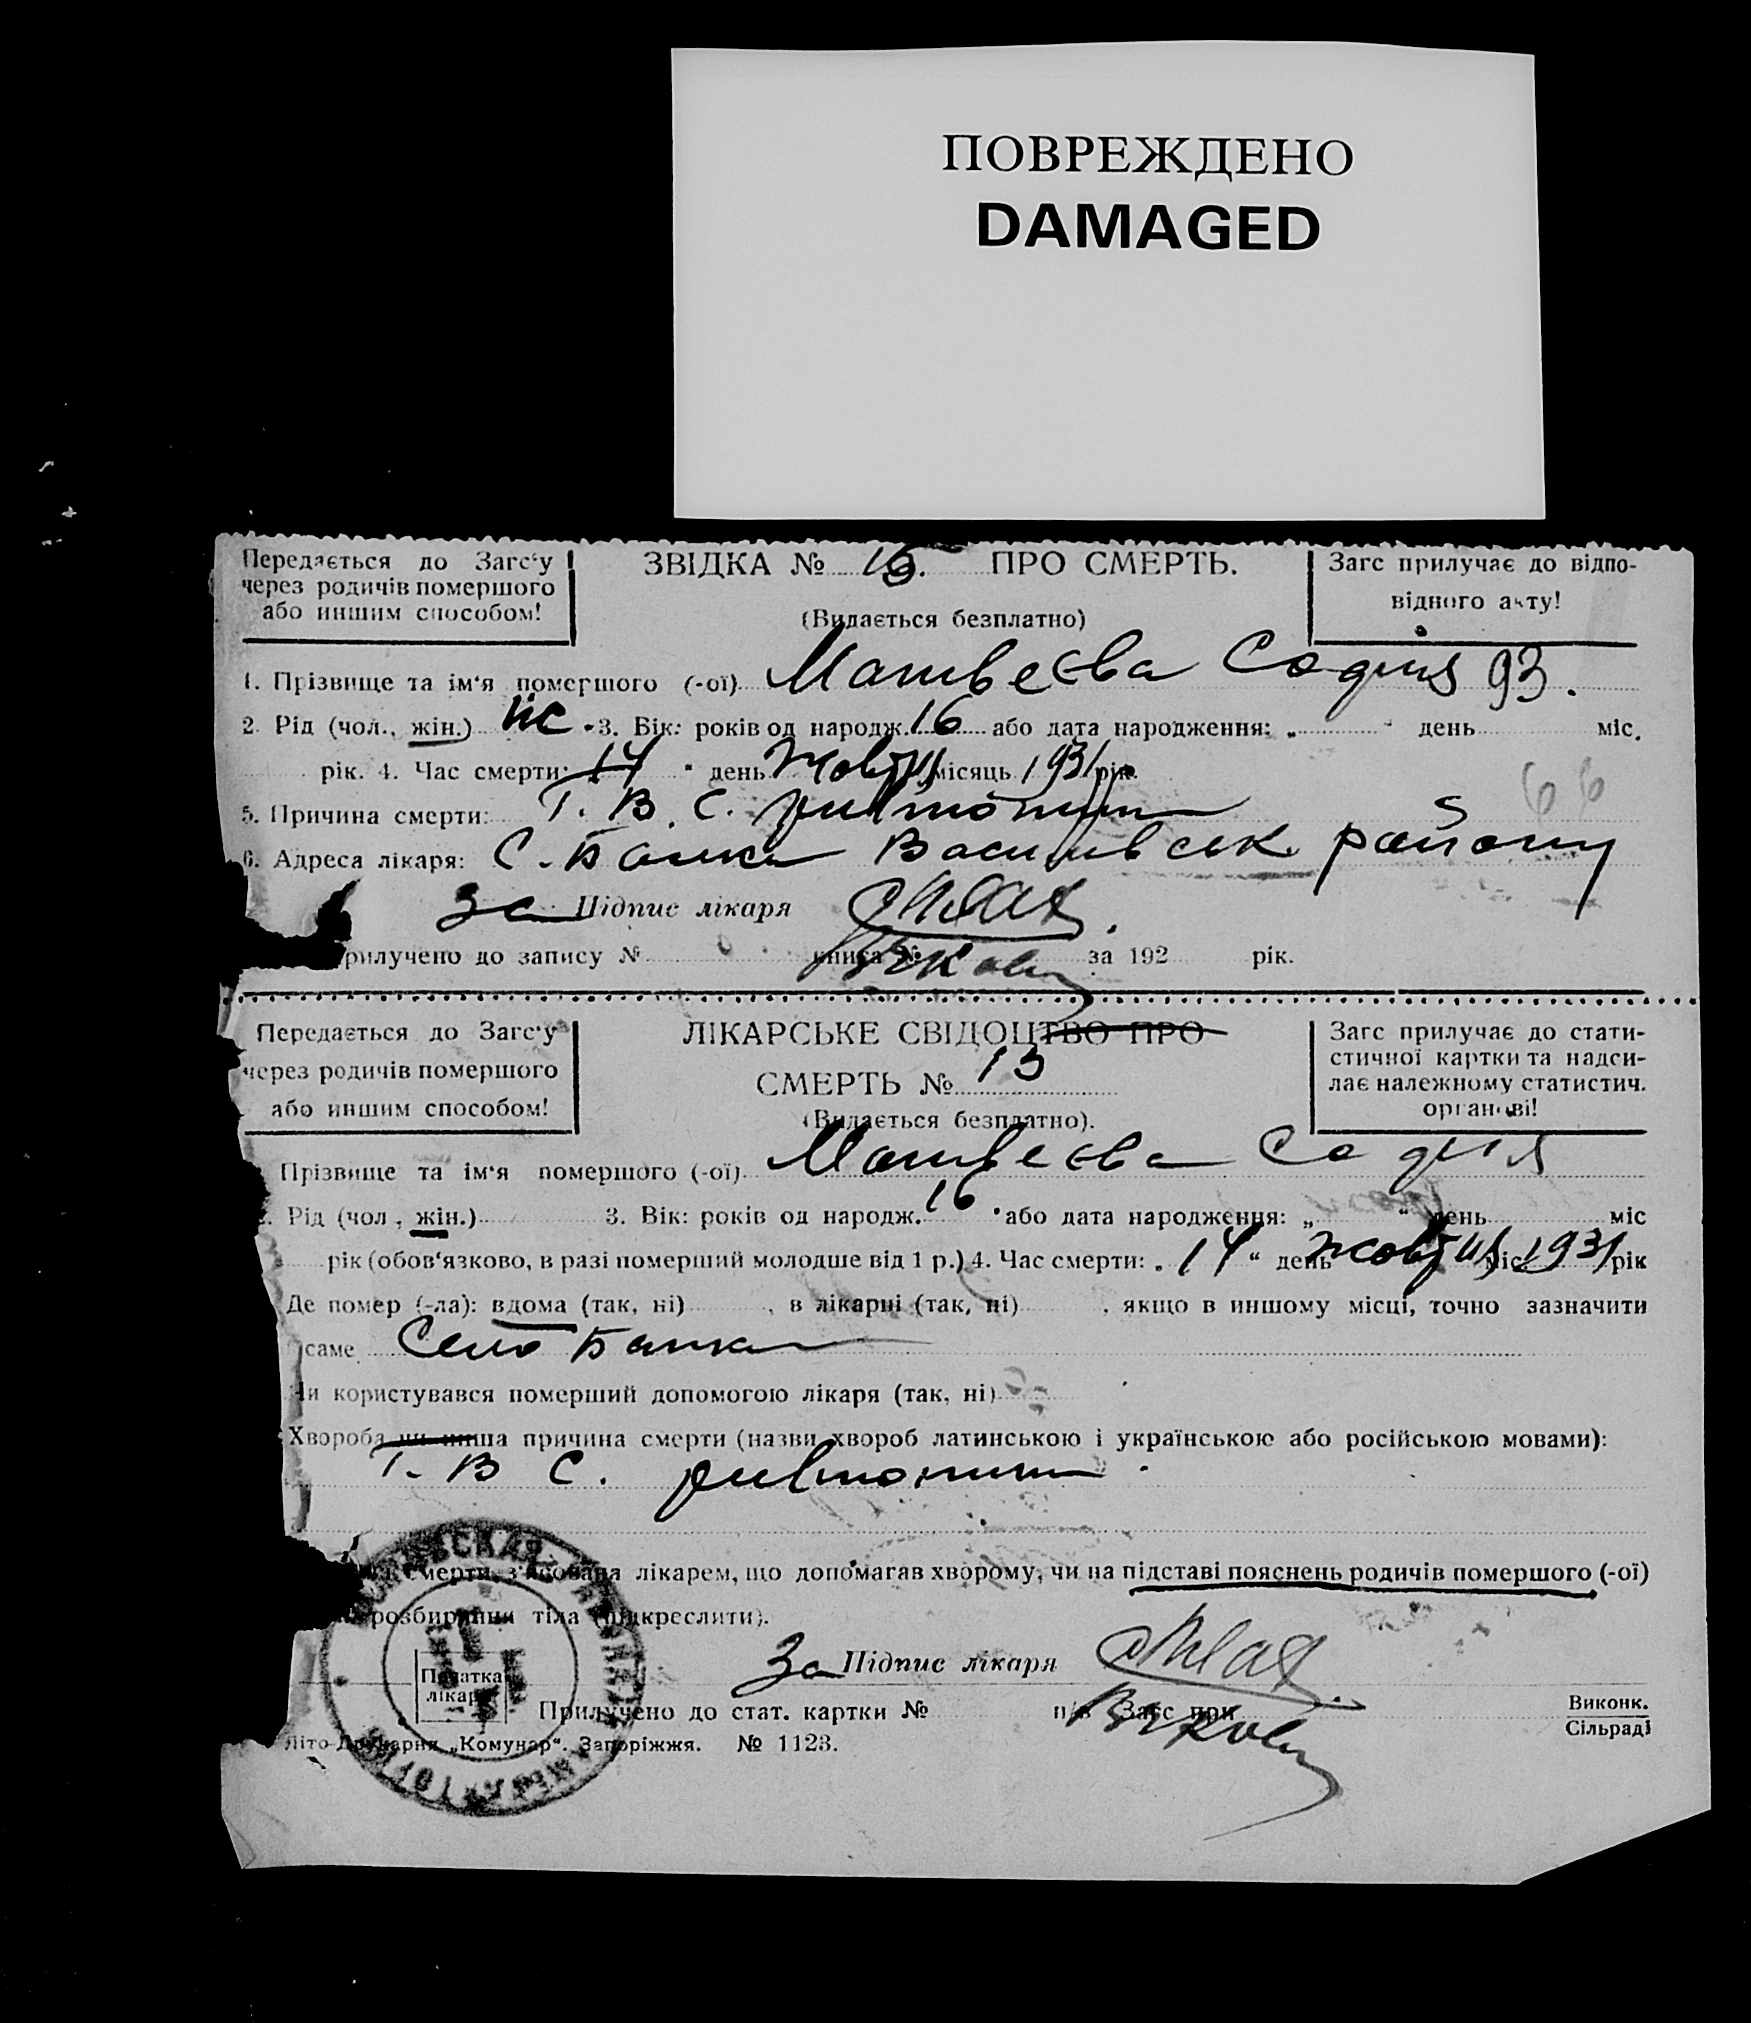 ПОВРЕЖДЕНО
DAMAGED
Передається до Загс'у
через родичів помершого
або иншим способом!
ЗВІДКА № ПРО СМЕРТЬ.
(Видається безплатно)
Загс прилучає до відпо-
відного акту!
1. Прізвище та ім'я помершого (-ої) Матвеєва Софія 93.
2. Рід (чол., жін.) жіс 3. Вік: років од народж. 16 або дата народження: „ " день міс.
рік. 4. Час смерти: 14 " день жовтня місяць 1931 рік.
66
5. Причина смерти: Т. В. С. pulmonum
6. Адреса лікаря: С. Балка Василівськ. району
за Підпис лікаря
рилучено до запису № книга № за 192 рік.
Передається до Загс'у
через родичів помершого
або иншим способом!
ЛІКАРСЬКЕ СВІДОЦТВО ПРО
СМЕРТЬ № 13
(Видається безплатно).
Загс прилучає до стати-
стичної картки та надси-
лає належному статистич.
органові!
Прізвище та ім'я помершого (-ої) Матвеєва Софія
Рід (чол., жін.) 3. Вік: років од народж. 16 або дата народження: „ " день міс
рік (обов'язково, в разі померший молодше від 1 р.) 4. Час смерти: 14 " день жовтня міс. 1931 рік
Де помер (-ла): вдома (так, ні) , в лікарні (так, ні) , якщо в иншому місці, точно зазначити
саме Село Балка
Чи користувався померший допомогою лікаря (так, ні)
Хвороба чи инша причина смерти (назви хвороб латинською і українською або російською мовами):
Т. В. С. pulmonum
смерти з'ясована лікарем, що допомагав хворому, чи на підставі пояснень родичів помершого (-ої)
розбирання тіла (підкреслити).
за Підпис лікаря
Печатка
лікаря
Прилучено до стат. картки № п/в Загс при
Виконк.
Сільраді
Літо-Друкарня „Комунар". Запоріжжя. № 1123.